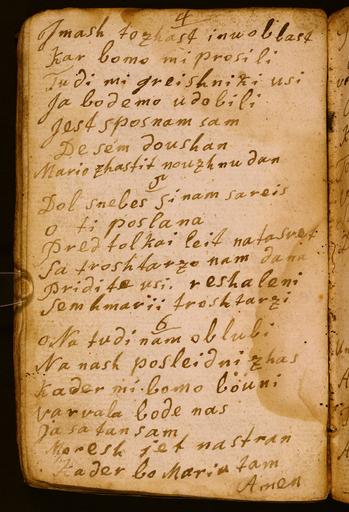 4
Jmash to zhast inwoblast
Kar bomo mi prosili
Tudi mi greishniki usi
Ja bodemo udobili
Jest sposnam sam
De sem doushan
Mario zhastit nouzh nu dan
5
Dol snebes si nam sareis
o ti poslana
Pred tolkai leit na ta svet
Sa troshtarzo nam dana
Pridite usi, reshaleni
Sem kmarii troshtarzi
6
Ona tudi nam oblubi
Na nash posleidni zhas
Kader mi bomo bouni
varvala bode nas
Ja satan sam
Moresh jet nastran
Kader bo Maria tam
Amen